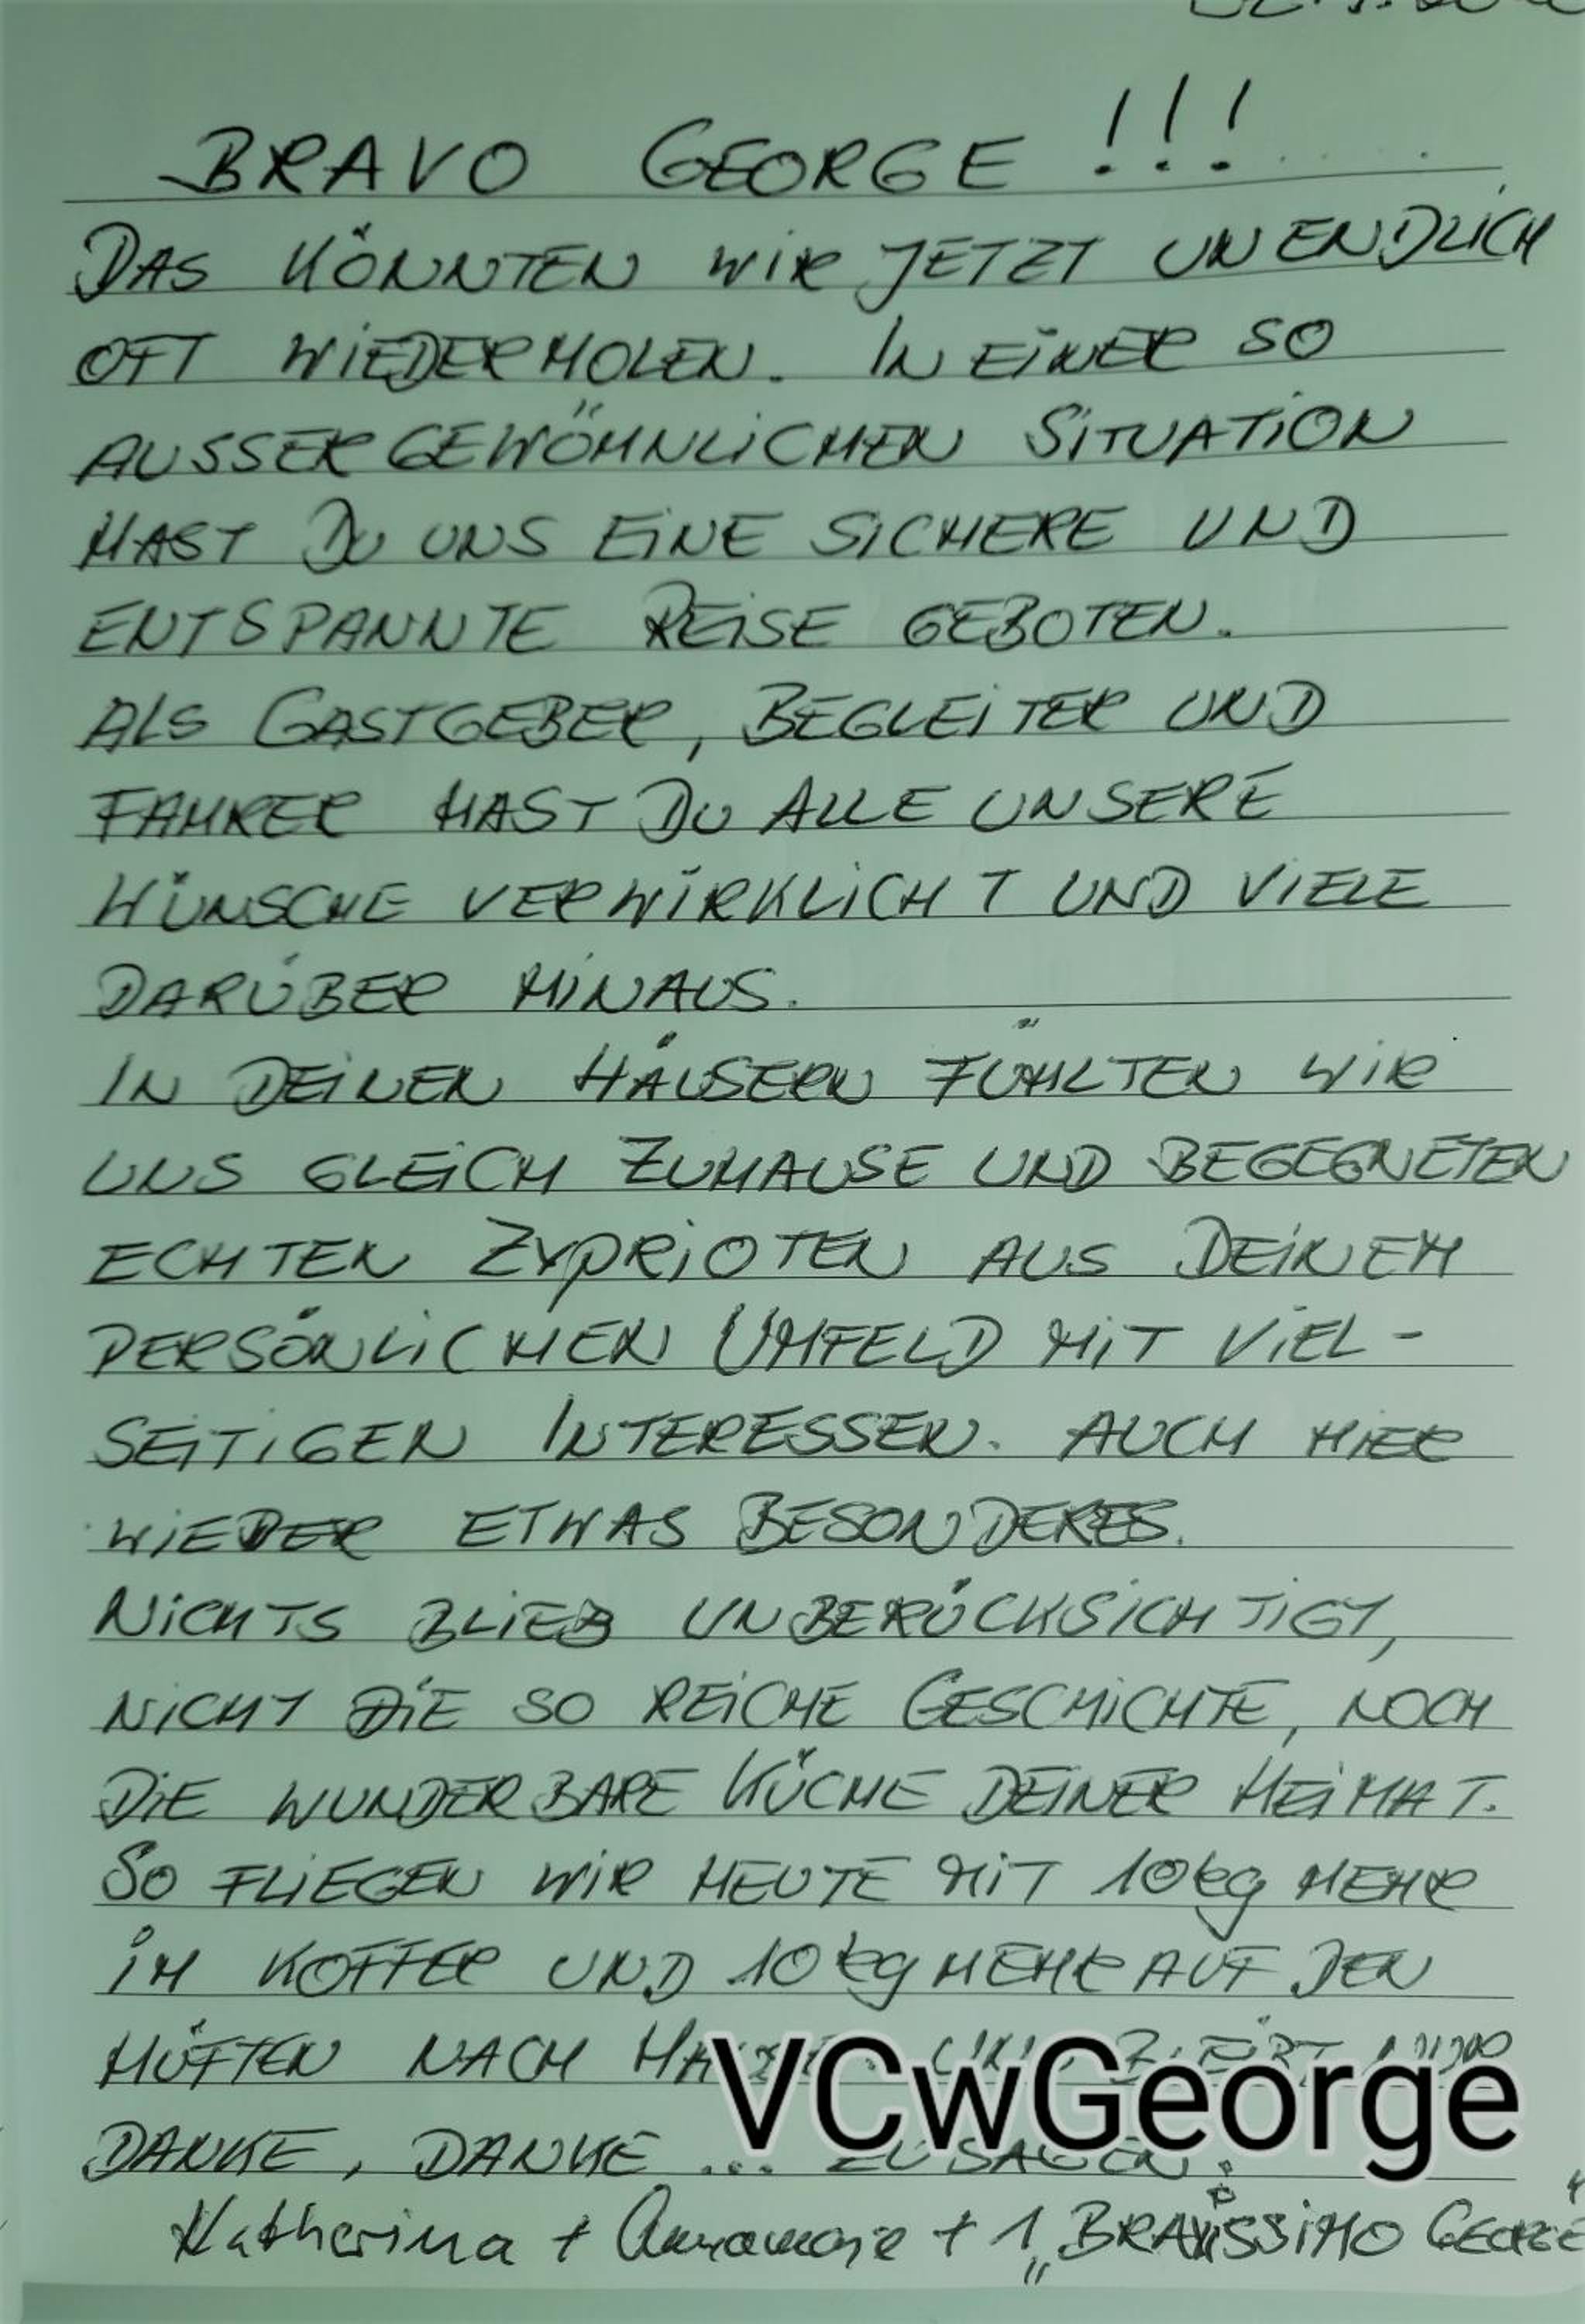 BRAVO GEORGE !!!
DAS KÖNNTEN WIR JETZT UNENDLICH
OFT WIEDERHOLEN. IN EINER SO
AUSSERGEWÖHNLICHEN SITUATION
HAST DU UNS EINE SICHERE UND
ENTSPANNTE REISE GEBOTEN.
ALS GASTGEBER, BEGLEITER UND
FAHRER HAST DU ALLE UNSERE
WÜNSCHE VERWIRKLICHT UND VIELE
DARÜBER HINAUS.
IN DEINEN HÄUSERN FÜHLTEN WIR
UNS GLEICH ZUHAUSE UND BEGEGNETEN
ECHTEN ZYPRIOTEN AUS DEINEM
PERSÖNLICHEN UMFELD MIT VIEL-
SEITIGEN INTERESSEN. AUCH HIER
WIEDER ETWAS BESONDERES.
NICHTS BLIEB UNBERÜCKSICHTIGT,
NICHT DIE SO REICHE GESCHICHTE, NOCH
DIE WUNDERBARE KÜCHE DEINER HEIMAT.
SO FLIEGEN WIR HEUTE MIT 10kg MEHR
IM KOFFER UND 10kg MEHR AUF DEN
HÜFTEN NACH
VCwGeorge
DANKE, DANKE ... ZU SAGEN.
Katherina + Annamarie + 1 „BRAVISSIMO GEORGE"